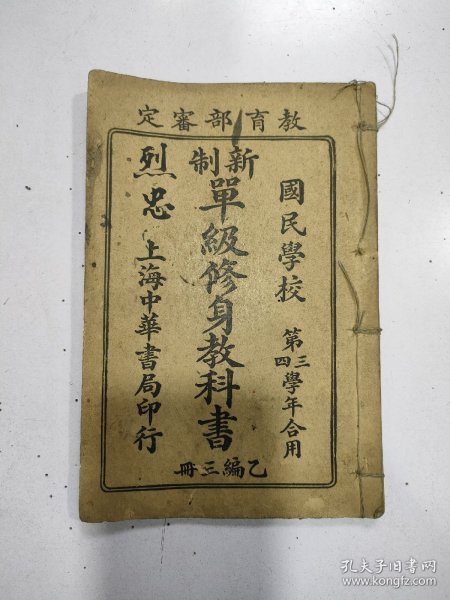 教育部審定
國民學校 第三四學年合用
新制
單級修身教科書
乙編三冊
忠烈
上海中華書局印行
孔夫子旧书网
www.kongfz.com